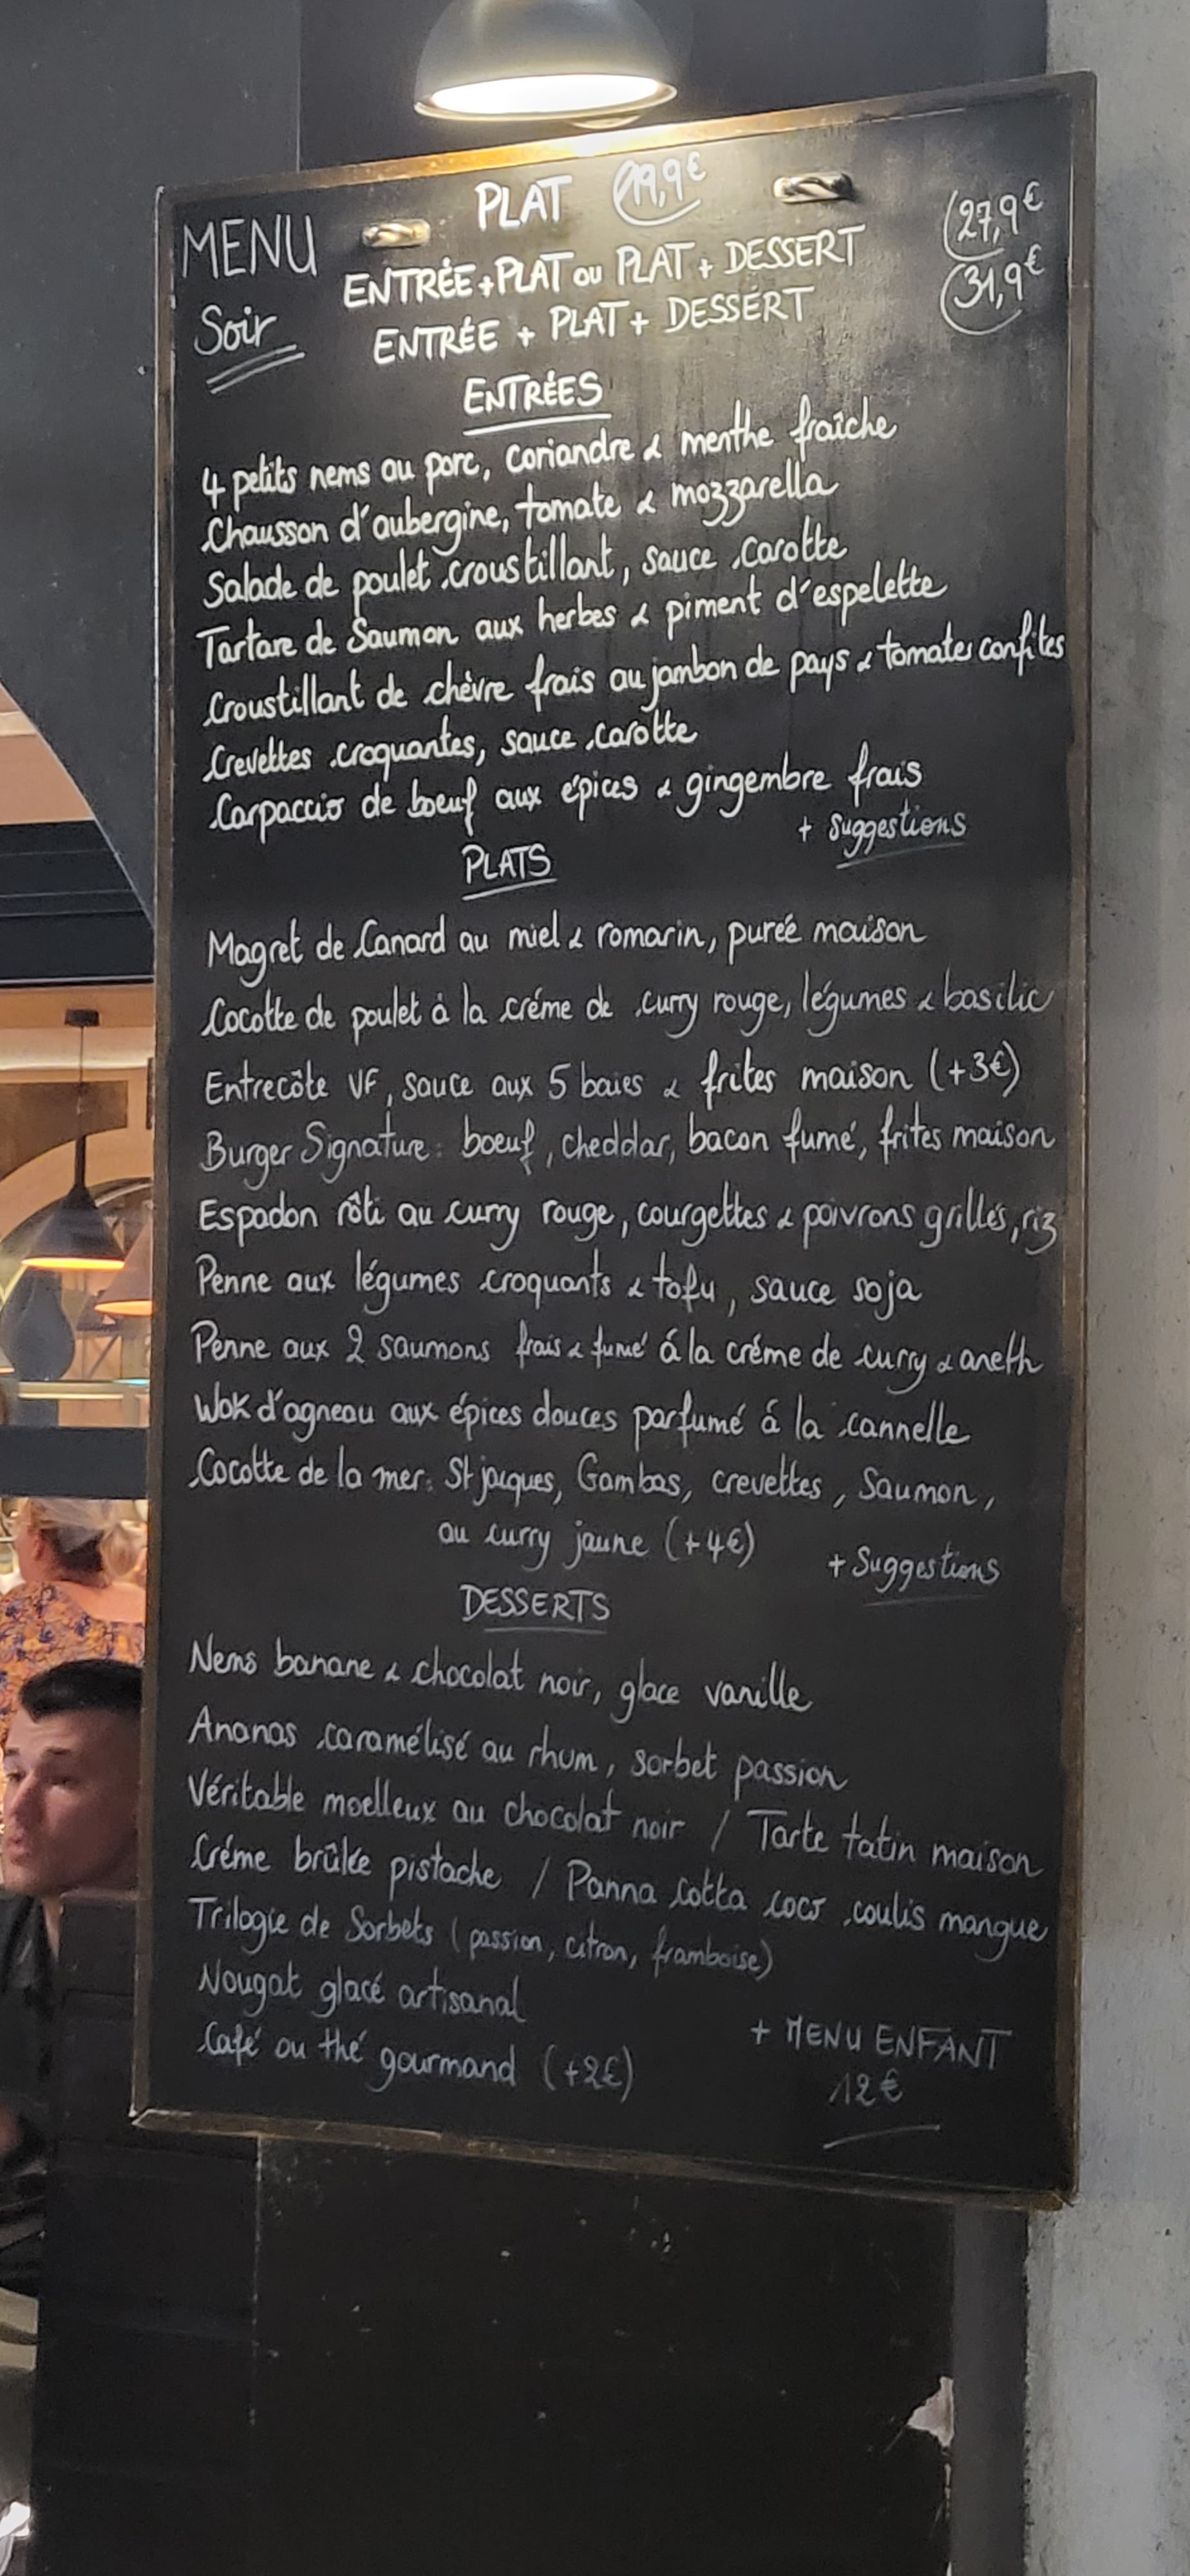 MENU
Soir
PLAT 19,9€
ENTRÉE + PLAT ou PLAT + DESSERT 27,9€
ENTRÉE + PLAT + DESSERT 31,9€
ENTRÉES
4 petits nems au porc, coriandre & menthe fraîche
Chausson d'aubergine, tomate & mozzarella
Salade de poulet croustillant, sauce carotte
Tartare de Saumon aux herbes & piment d'espelette
Croustillant de chèvre frais au jambon de pays & tomates confites
Crevettes croquantes, sauce carotte
Carpaccio de boeuf aux épices & gingembre frais
+ Suggestions
PLATS
Magret de Canard au miel & romarin, purée maison
Cocotte de poulet à la créme de curry rouge, légumes & basilic
Entrecôte VF, sauce aux 5 baies & frites maison (+3€)
Burger Signature : boeuf, cheddar, bacon fumé, frites maison
Espadon rôti au curry rouge, courgettes & poivrons grillés, riz
Penne aux légumes croquants & tofu, sauce soja
Penne aux 2 saumons frais & fumé á la créme de curry & aneth
Wok d'agneau aux épices douces parfumé á la cannelle
Cocotte de la mer : St jacques, Gambas, crevettes, Saumon,
au curry jaune (+4€)
+ Suggestions
DESSERTS
Nems banane & chocolat noir, glace vanille
Ananas caramélisé au rhum, sorbet passion
Véritable moelleux au chocolat noir / Tarte tatin maison
Créme brûlée pistache / Panna cotta coco coulis mangue
Trilogie de Sorbets (passion, citron, framboise)
Nougat glacé artisanal
Café ou thé gourmand (+2€)
+ MENU ENFANT
12€